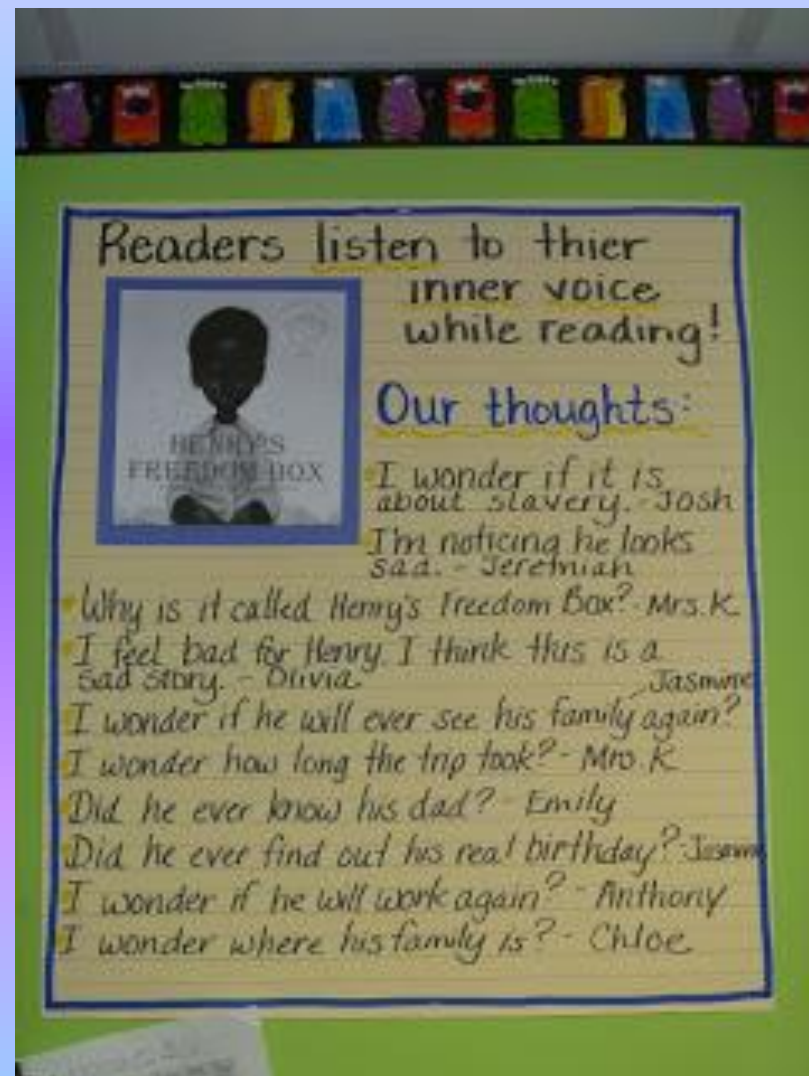 Readers listen to thier
inner voice
while reading!
HENRY'S
FREEDOM BOX
Our thoughts:
I wonder if it is
about slavery. - Josh
I'm noticing he looks
sad. - Jeremiah
Why is it called Henry's Freedom Box? - Mrs. K
I feel bad for Henry. I think this is a
sad story. - Olivia
I wonder if he will ever see his family again? - Jasmine
I wonder how long the trip took? - Mrs. K
Did he ever know his dad? - Emily
Did he ever find out his real birthday? - Jasmine
I wonder if he will work again? - Anthony
I wonder where his family is? - Chloe